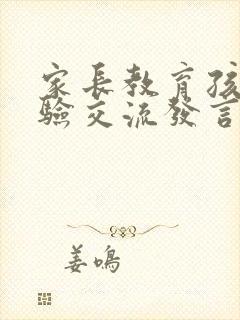 家长教育孩
驗交流發言
姜鳴